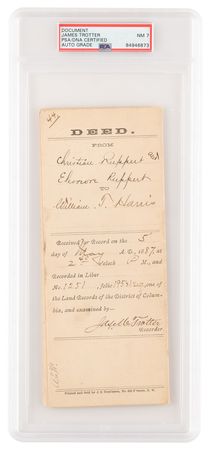 DOCUMENT
JAMES TROTTER
PSA/DNA CERTIFIED
AUTO GRADE
NM 7
PSA
84946873
44
DEED.
FROM
Christian Ruppert
Eleonora Ruppert
TO
William T. Harris
Received for Record on the 5
day of May A. D., 1887, at
2 o'clock P M., and
Recorded in Liber
No. 1251
the Land Records of the District of Colum-
bia, and examined by
Trotter
Recorder.